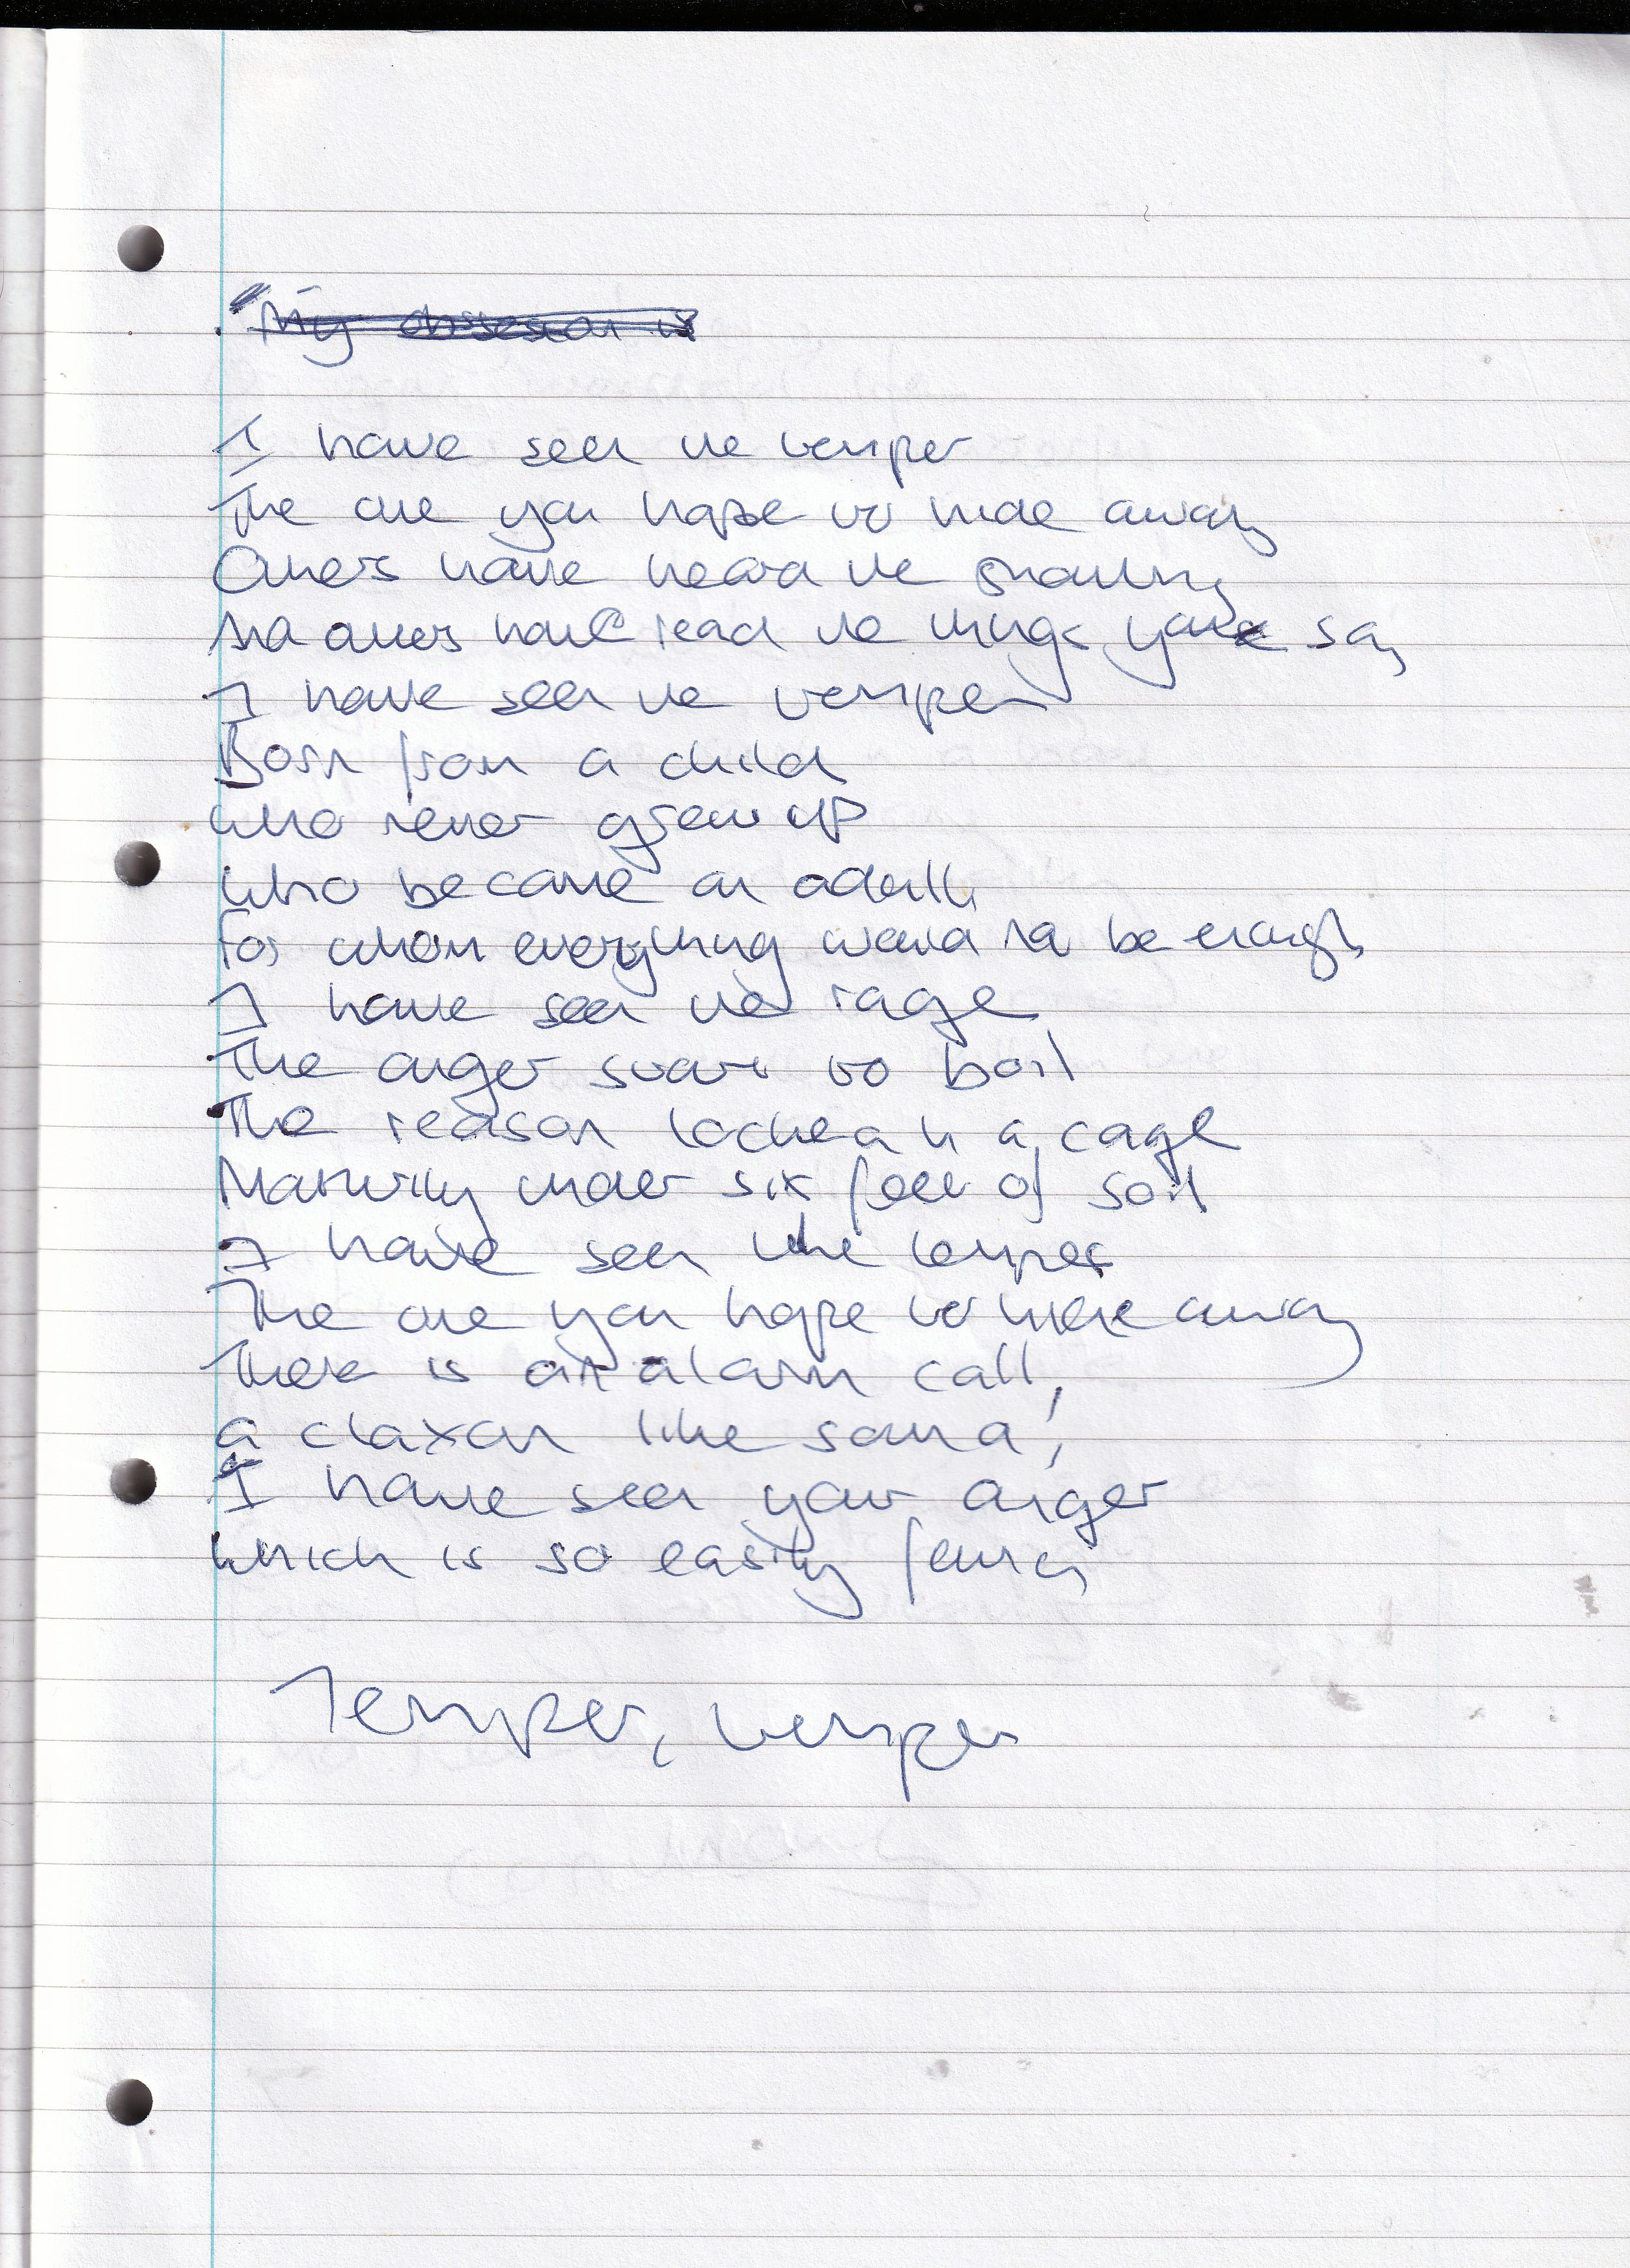 My obsession is
I have seen the temper
The one you hope to hide away
Others have heard the shouting
And others have read the things you say
I have seen the temper
Born from a child
who never grew up
who became an adult
For whom everything would not be enough
I have seen the rage
The anger start to boil
The reason locked in a cage
Maturity under six feet of soil
I have seen the temper
The one you hope to hide away
There is an alarm call,
a claxon like sound,
I have seen your anger
which is so easily found
Temper, temper